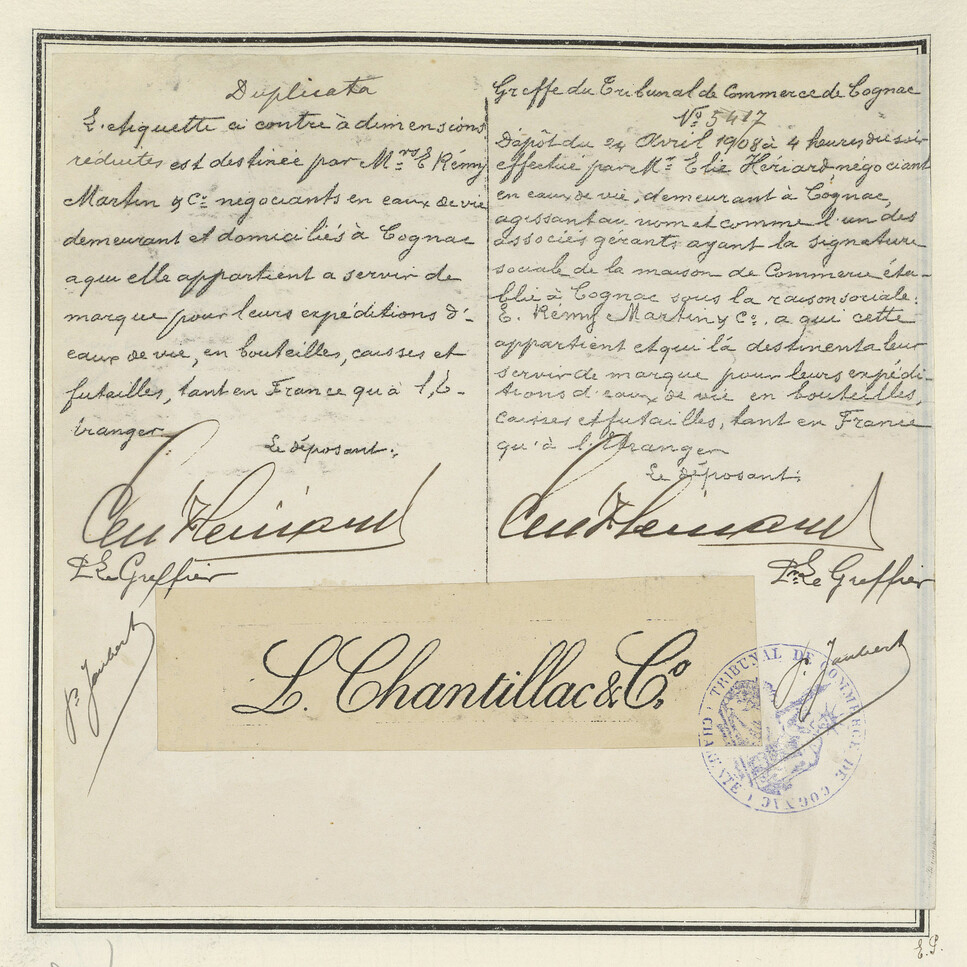 Duplicata
L'etiquette ci contre à dimensions
réduites est destinée par Mrs E Rémy
Martin & Cie negociants en eaux de vie
demeurant et domiciliés à Cognac
a qui elle appartient a servir de
marque pour leurs expéditions d'-
eaux de vie, en bouteilles, caisses et
futailles, tant en France qu'à l'é-
tranger.
Le déposant:
Le Greffier
P. Jaubert
Greffe du Tribunal de Commerce de Cognac
No 5417
Dépôt du 24 Avril 1908 à 4 heures du soir
effectué par Mr Elie Hériard, négociant
en eaux de vie, demeurant à Cognac,
agissant au nom et comme l'un des
associés gérants ayant la signature
sociale de la maison de Commerce éta-
blie à Cognac sous la raison sociale:
E. Rémy Martin & Co. a qui cette
appartient et qui la destinent a leur
servir de marque pour leurs expédi-
tions d'eaux de vie en bouteilles,
caisses et futailles, tant en France
qu'à l'Etranger
Le déposant:
Le Greffier
J. Jaubert
L. Chantillac & Co.
TRIBUNAL DE COMMERCE DE COGNAC
CHARENTE
E.P.